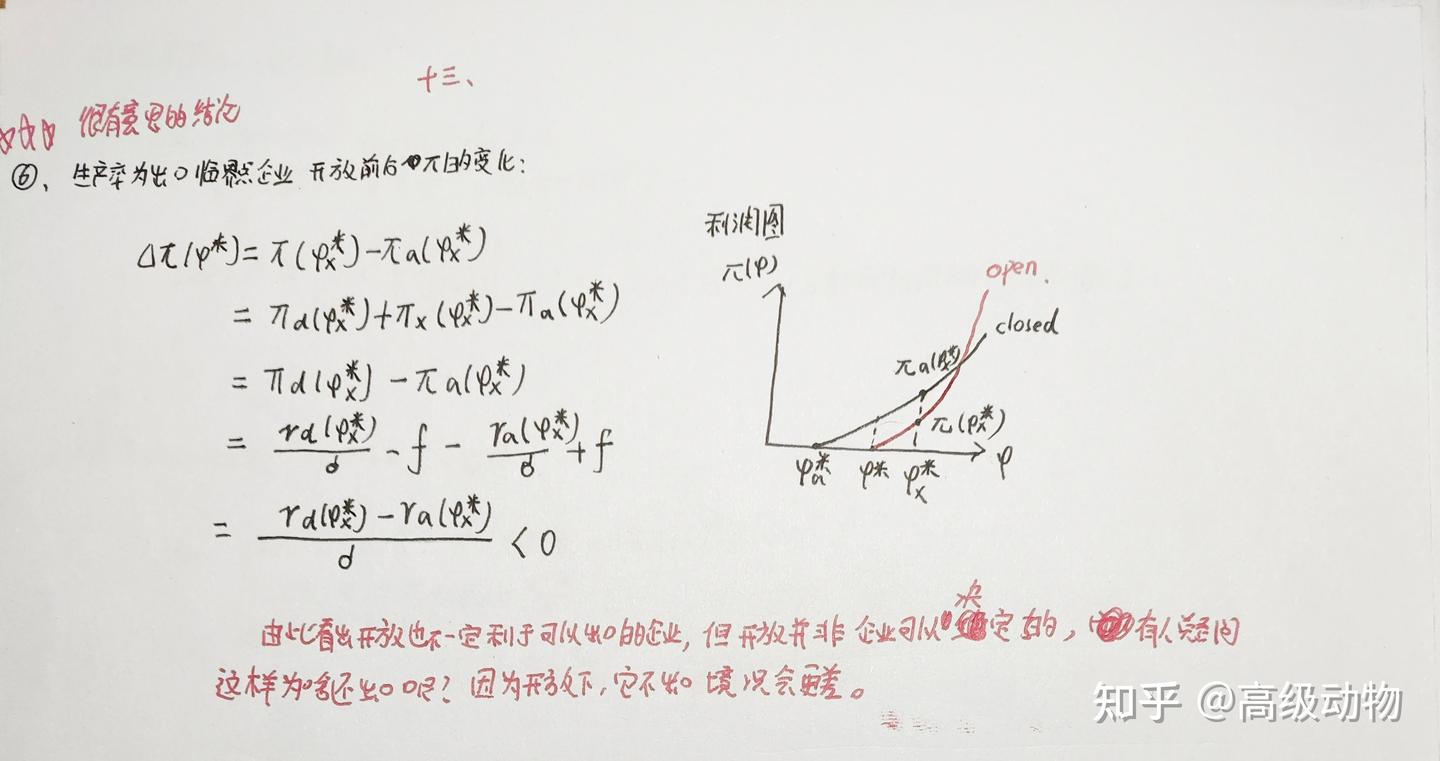 十三、
☆☆☆ 很有意思的结论
⑥、生产率为出口临界点企业 开放前后π的变化：
Δπ(φ*) = π(φₓ*) - πa(φₓ*)
= πd(φₓ*) + πₓ(φₓ*) - πa(φₓ*)
= πd(φₓ*) - πa(φₓ*)
= rd(φₓ*)/σ - f - ra(φₓ*)/σ + f
= (rd(φₓ*) - ra(φₓ*))/σ < 0
利润图
π(φ)
open.
closed
πa(φₓ*)
π(φₓ*)
φa* φ* φₓ* φ
由此看出开放也不一定利于可以出口的企业，但开放并非企业可以决定的，有人疑问
这样为啥还出口呢？因为开放下，它不出口境况会更差。
知乎 @高级动物